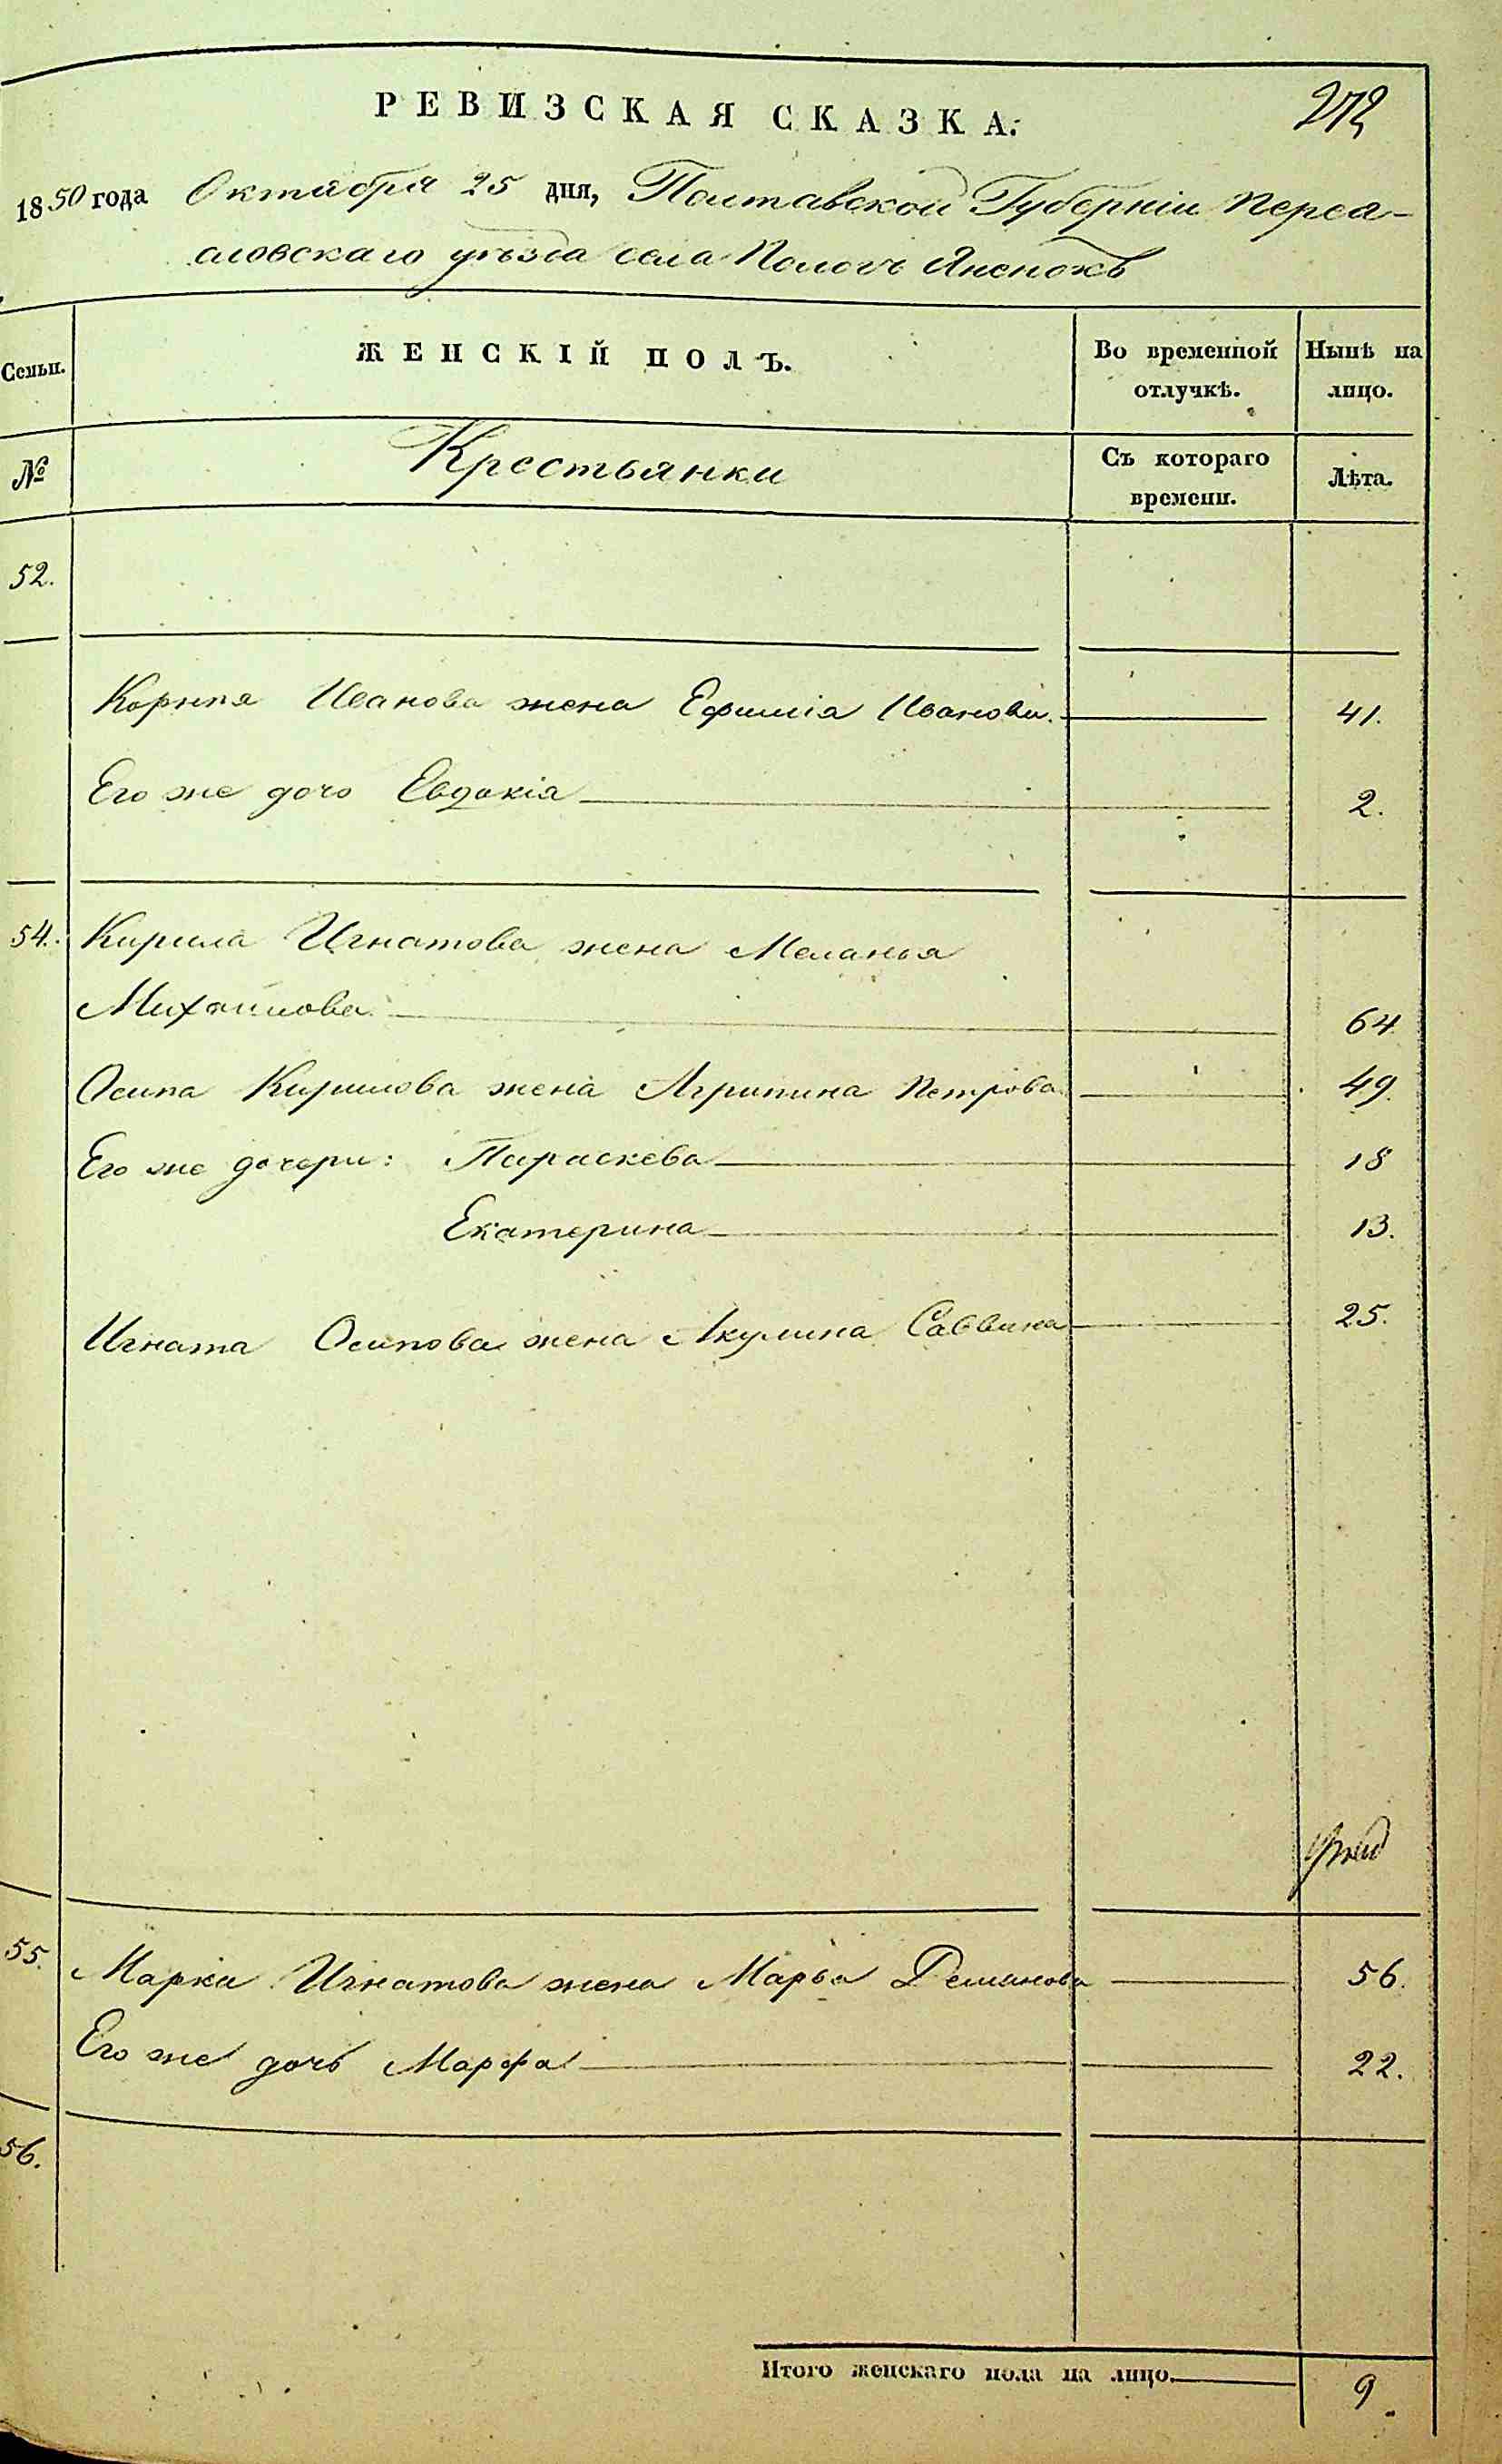 РЕВИЗСКАЯ СКАЗКА.
272
1850 года Октября 25 дня, Полтавской Губерніи Перея-
словскаго уѣзда села Пологъ Яненокъ
Семьи.
ЖЕНСКІЙ ПОЛЪ.
Во временной отлучкѣ.
Нынѣ на лицо.
№
Крестьянки
Съ котораго времени.
Лѣта.
52.
Корнѣя Иванова жена Ефимія Иванова. 41.
Его же дочь Евдокія 2.
54. Кирила Игнатова жена Меланья
Михайлова 64
Осипа Кирилова жена Агрипина Петрова 49.
Его же дочери: Параскева 18
Екатерина 13.
Игната Осипова жена Акулина Саввина 25.
55. Марка Игнатова жена Марья Демьянова 56.
Его же дочь Марфа 22.
56.
Итого женскаго пола на лицо. 9.